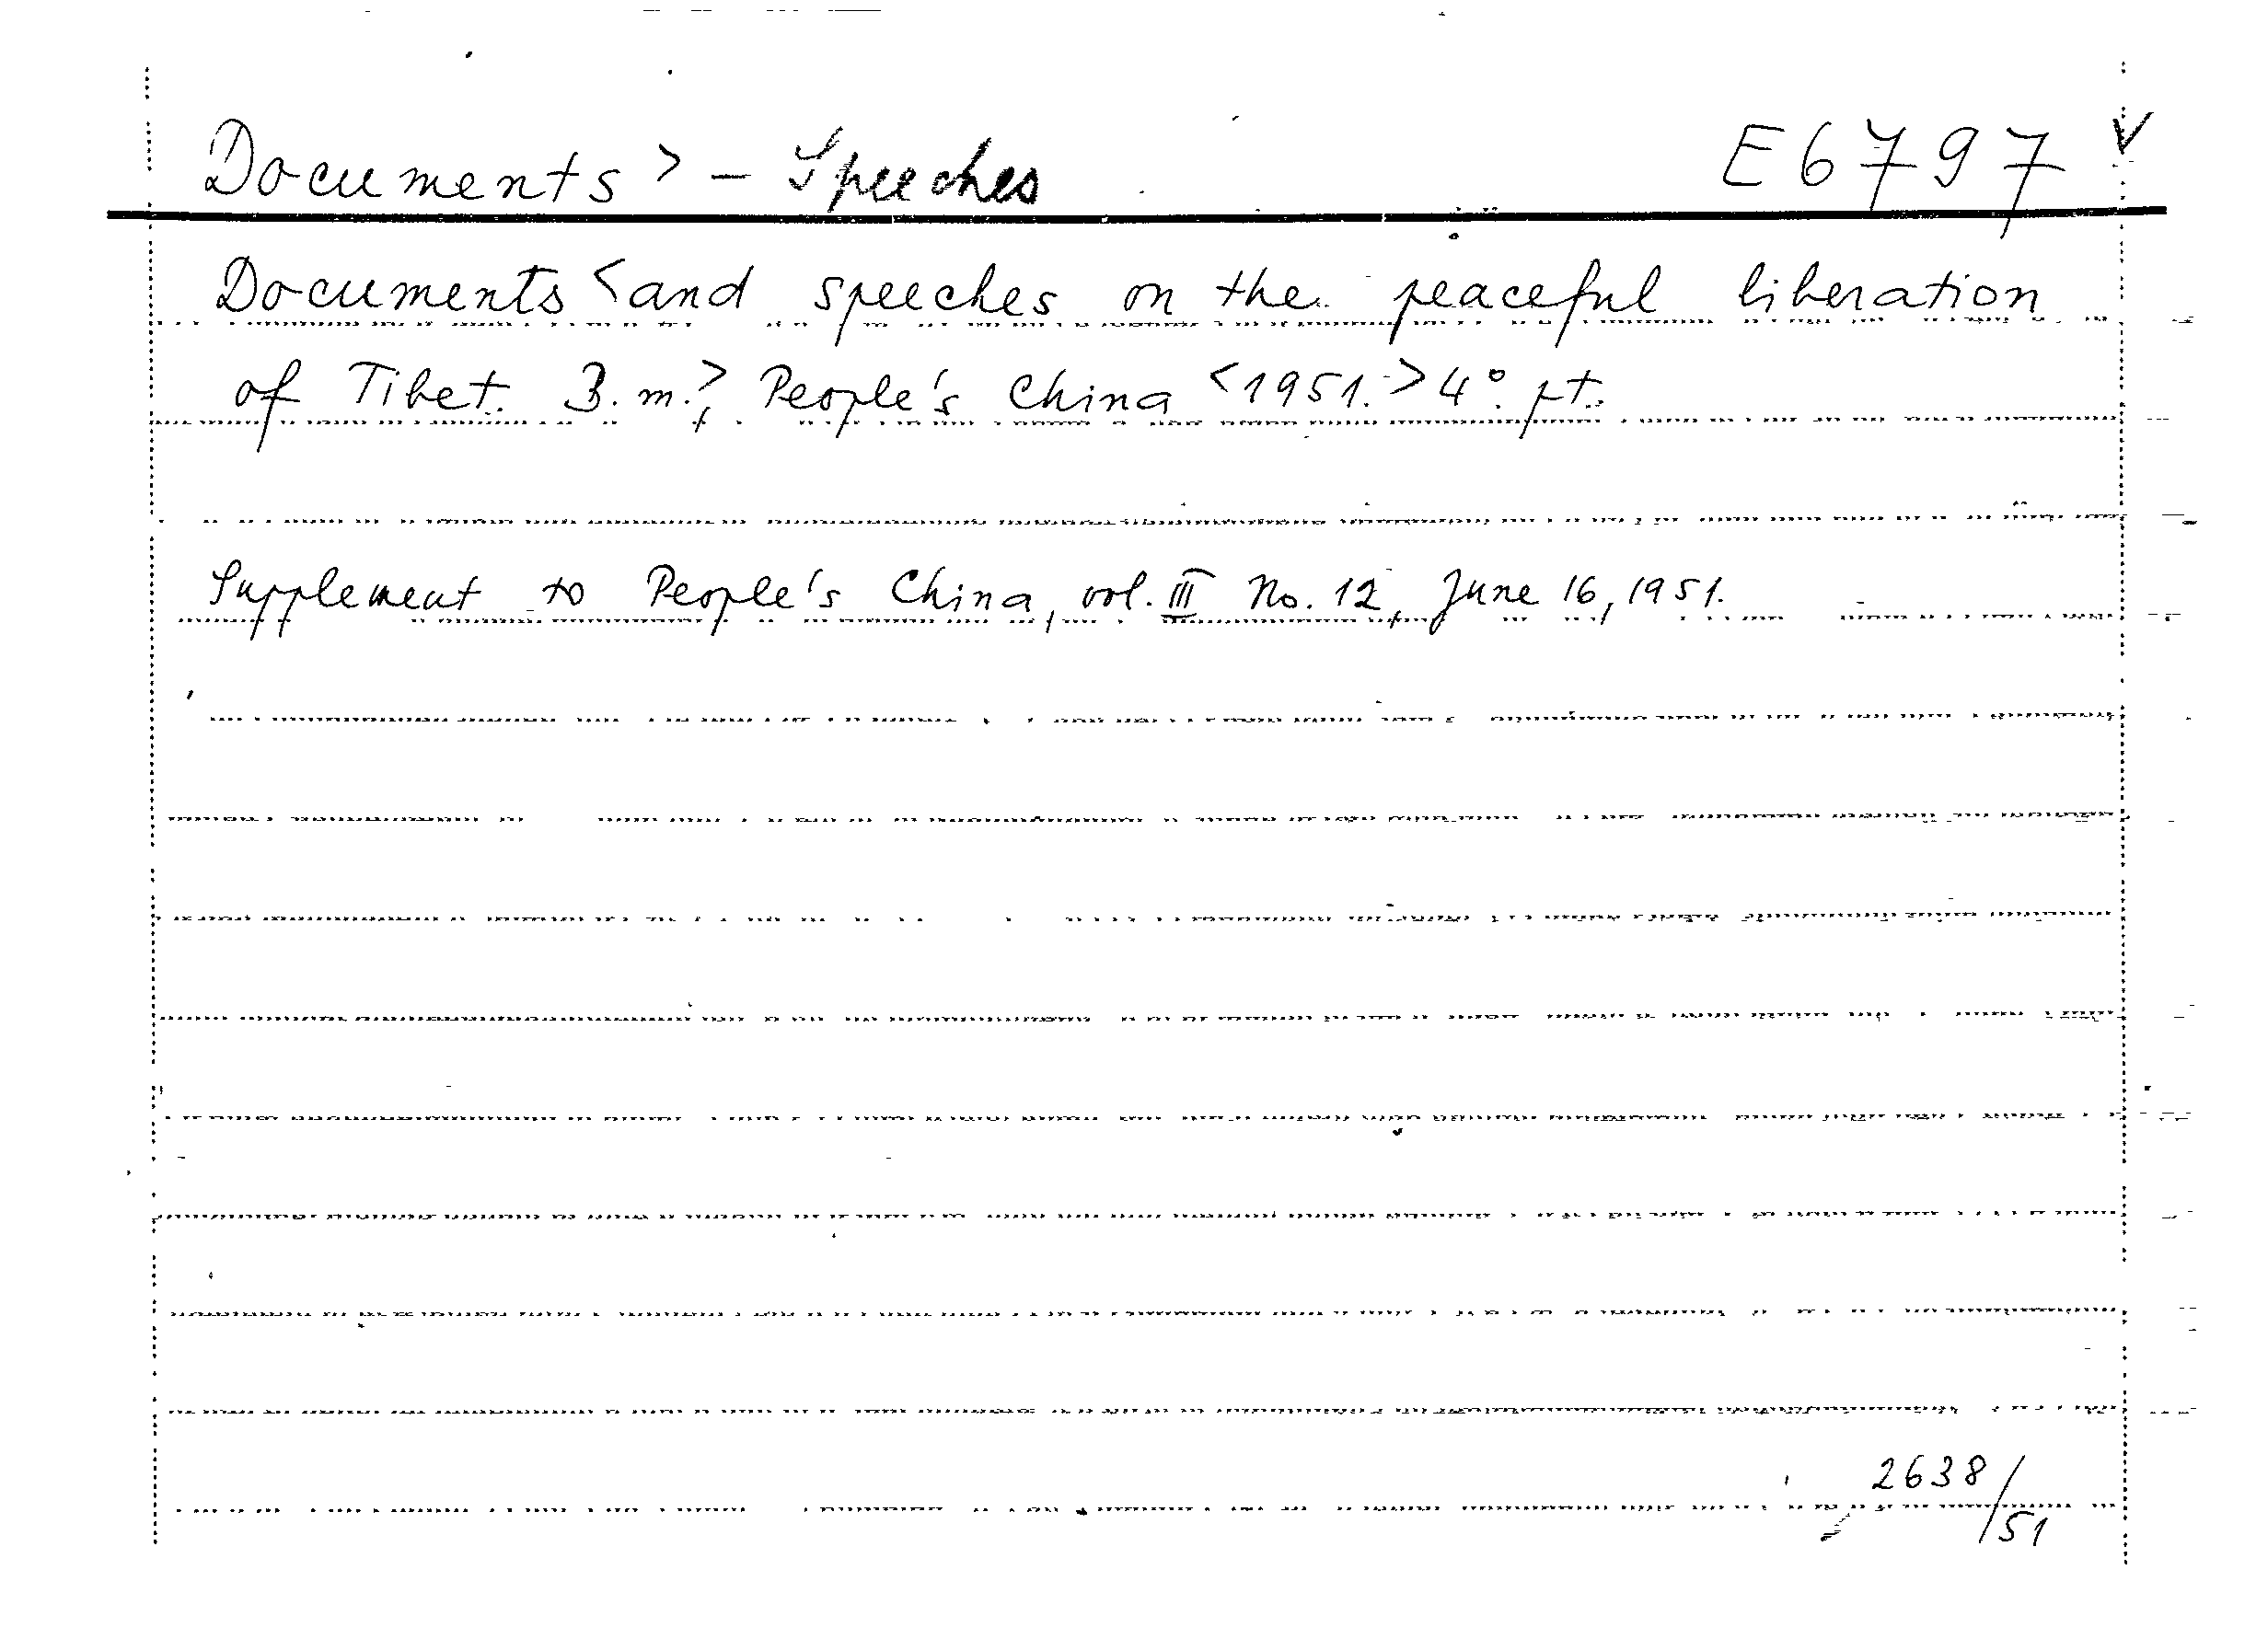 Documents > – Speeches E6797 v
Documents < and speeches on the peaceful liberation
of Tibet. 3. m.>, People's China <1951.> 4°. pt.
Supplement to People's China, vol. III No. 12, June 16, 1951.
2638/51